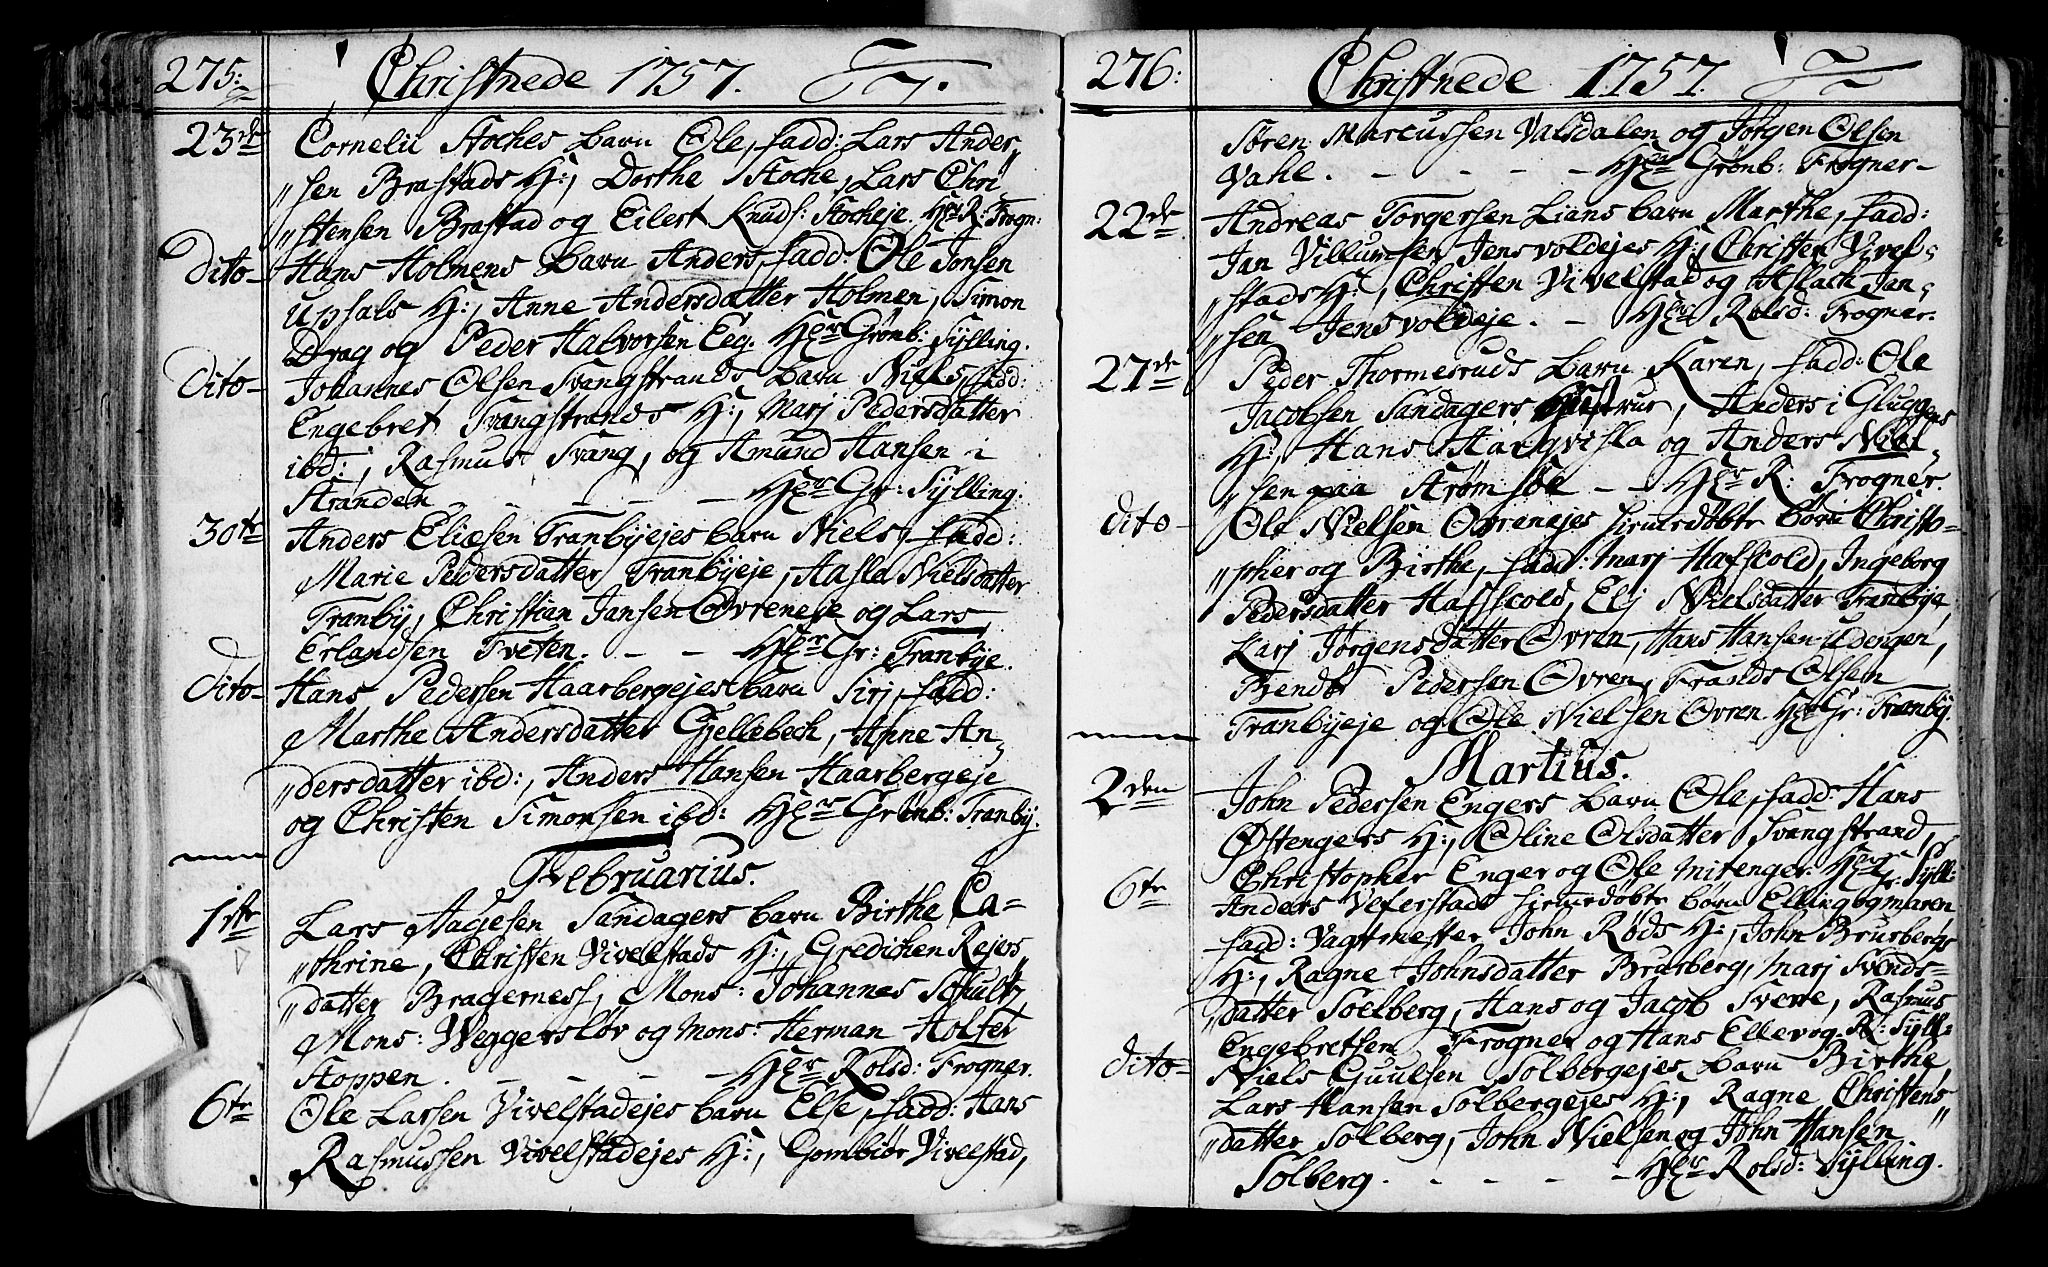 275:
Christnede 1757.
23de Cornelii Stoches barn Ole, fadd: Lars Ander„
„sen Brastads H:, Dorthe Stoche, Lars Chri„
„stensen Brastad og Eilert Knuds: Stocheje. Hr R: Frogn:
Dito- Hans Holmens barn Anders, fadd: Ole Jonsen
Upsals H:, Anne Andersdatter Holmen, Simon
Drag og Peder Halvorsen Eeg. Hr Grönb: Sylling.
Dito- Johannes Olsen Svangstrands barn Niels, fadd:
Engebret Svangstrands H:, Marj Pedersdatter
ibd:, Rasmus Svang, og Amund Hansen i
Stranden - - - Hr Gr: Sylling.
30te Anders Eliæsen Tranbyejes barn Niels, fadd:
Marie Pedersdatter Tranbyeje, Aasla Nielsdatter
Tranby, Christian Jansen Øvreneje og Lars
Erlandsen Tveten. - - Hr Gr: Tranbye.
Dito- Hans Pedersen Haarbergejes barn Sirj, fadd:
Marthe Andersdatter Gjellebech, Anne An„
„dersdatter ibd:, Anders Hansen Haarbergeje
og Christen Simonsen ibd: Hr Grönb: Tranby.
Februarius.
1ste Lars Aagesen Sandagers barn Birthe Ca=
„thrine, Christen Vivelstads H:, Gredichen Rejers„
„datter Bragerness, Mons: Johannes Schultz,
Mons: Weggersløv og Mons: Herman Holfer
Stoppen. - - - - Hr Rolsd: Frogner.
6te Ole Larsen Vivelstadejes barn Else, fadd: Hans
Rasmussen Vivelstadejes H:, Gombiør Vivelstad,
276:
Christnede 1757.
Søren Marcussen Valsdalen og Jørgen Olsen
Vahl. - - - - Hr Grönb: Frogner-
22de Andreas Torgersen Lians barn Marthe, fadd:
Jan Villumsen Jensvoldejes H:, Christen Vivel„
„stads H:, Christen Vivelstad og Aslach Jan„
„sen Jensvoldeje. - Hr Rolsd: Frogner.
27de Peder Thormesruds barn Karen, fadd: Ole
Jacobsen Sandagers Hustrue, Anders i Gluggens
H:, Hans Haraqvisla og Anders Niel„
„sen paa Strømsöe - - Hr R: Frogner.
dito- Ole Nielsen Øvrenejes hiemedøbte børn Christo-
„pher og Birthe, fadd: Marj Hafscold, Ingeborg
Pedersdatter Hafscold, Elj Nielsdatter Tranbye,
Karj Jørgensdatter Øvren, Hans Hansen Udengen,
Trendør Pedersen Øvren, Frands Olsen
Tranbyeje og Ole Nielsen Øvren. Hr Gr: Tranby.
Martius.
2den John Pedersen Engers barn Ole, fadd: Hans
Østengers H:, Oline Olsdatter Svangstrand,
Christopher Enger og Ole Mitenger. Hr Gr: Syll:
6te Anders Veferstads hiemedøbte børn Elling og Maren
fadd: Vagtmester John Røds H:, John Brusbergs
H:, Ragne Johnsdatter Brusberg, Marj Svends-
„datter Solberg, Hans og Jacob Sverre, Rasmus
Engebretsen Frogner og Hans Ellevog. R: Syll:
dito- Niels Guulsen Solbergejes barn Birthe,
Lars Hansen Solbergejes H:, Ragne Christens„
„datter Solberg, John Nielsen og John Hansen
Solberg. - - - - Hr Rolsd: Sylling.